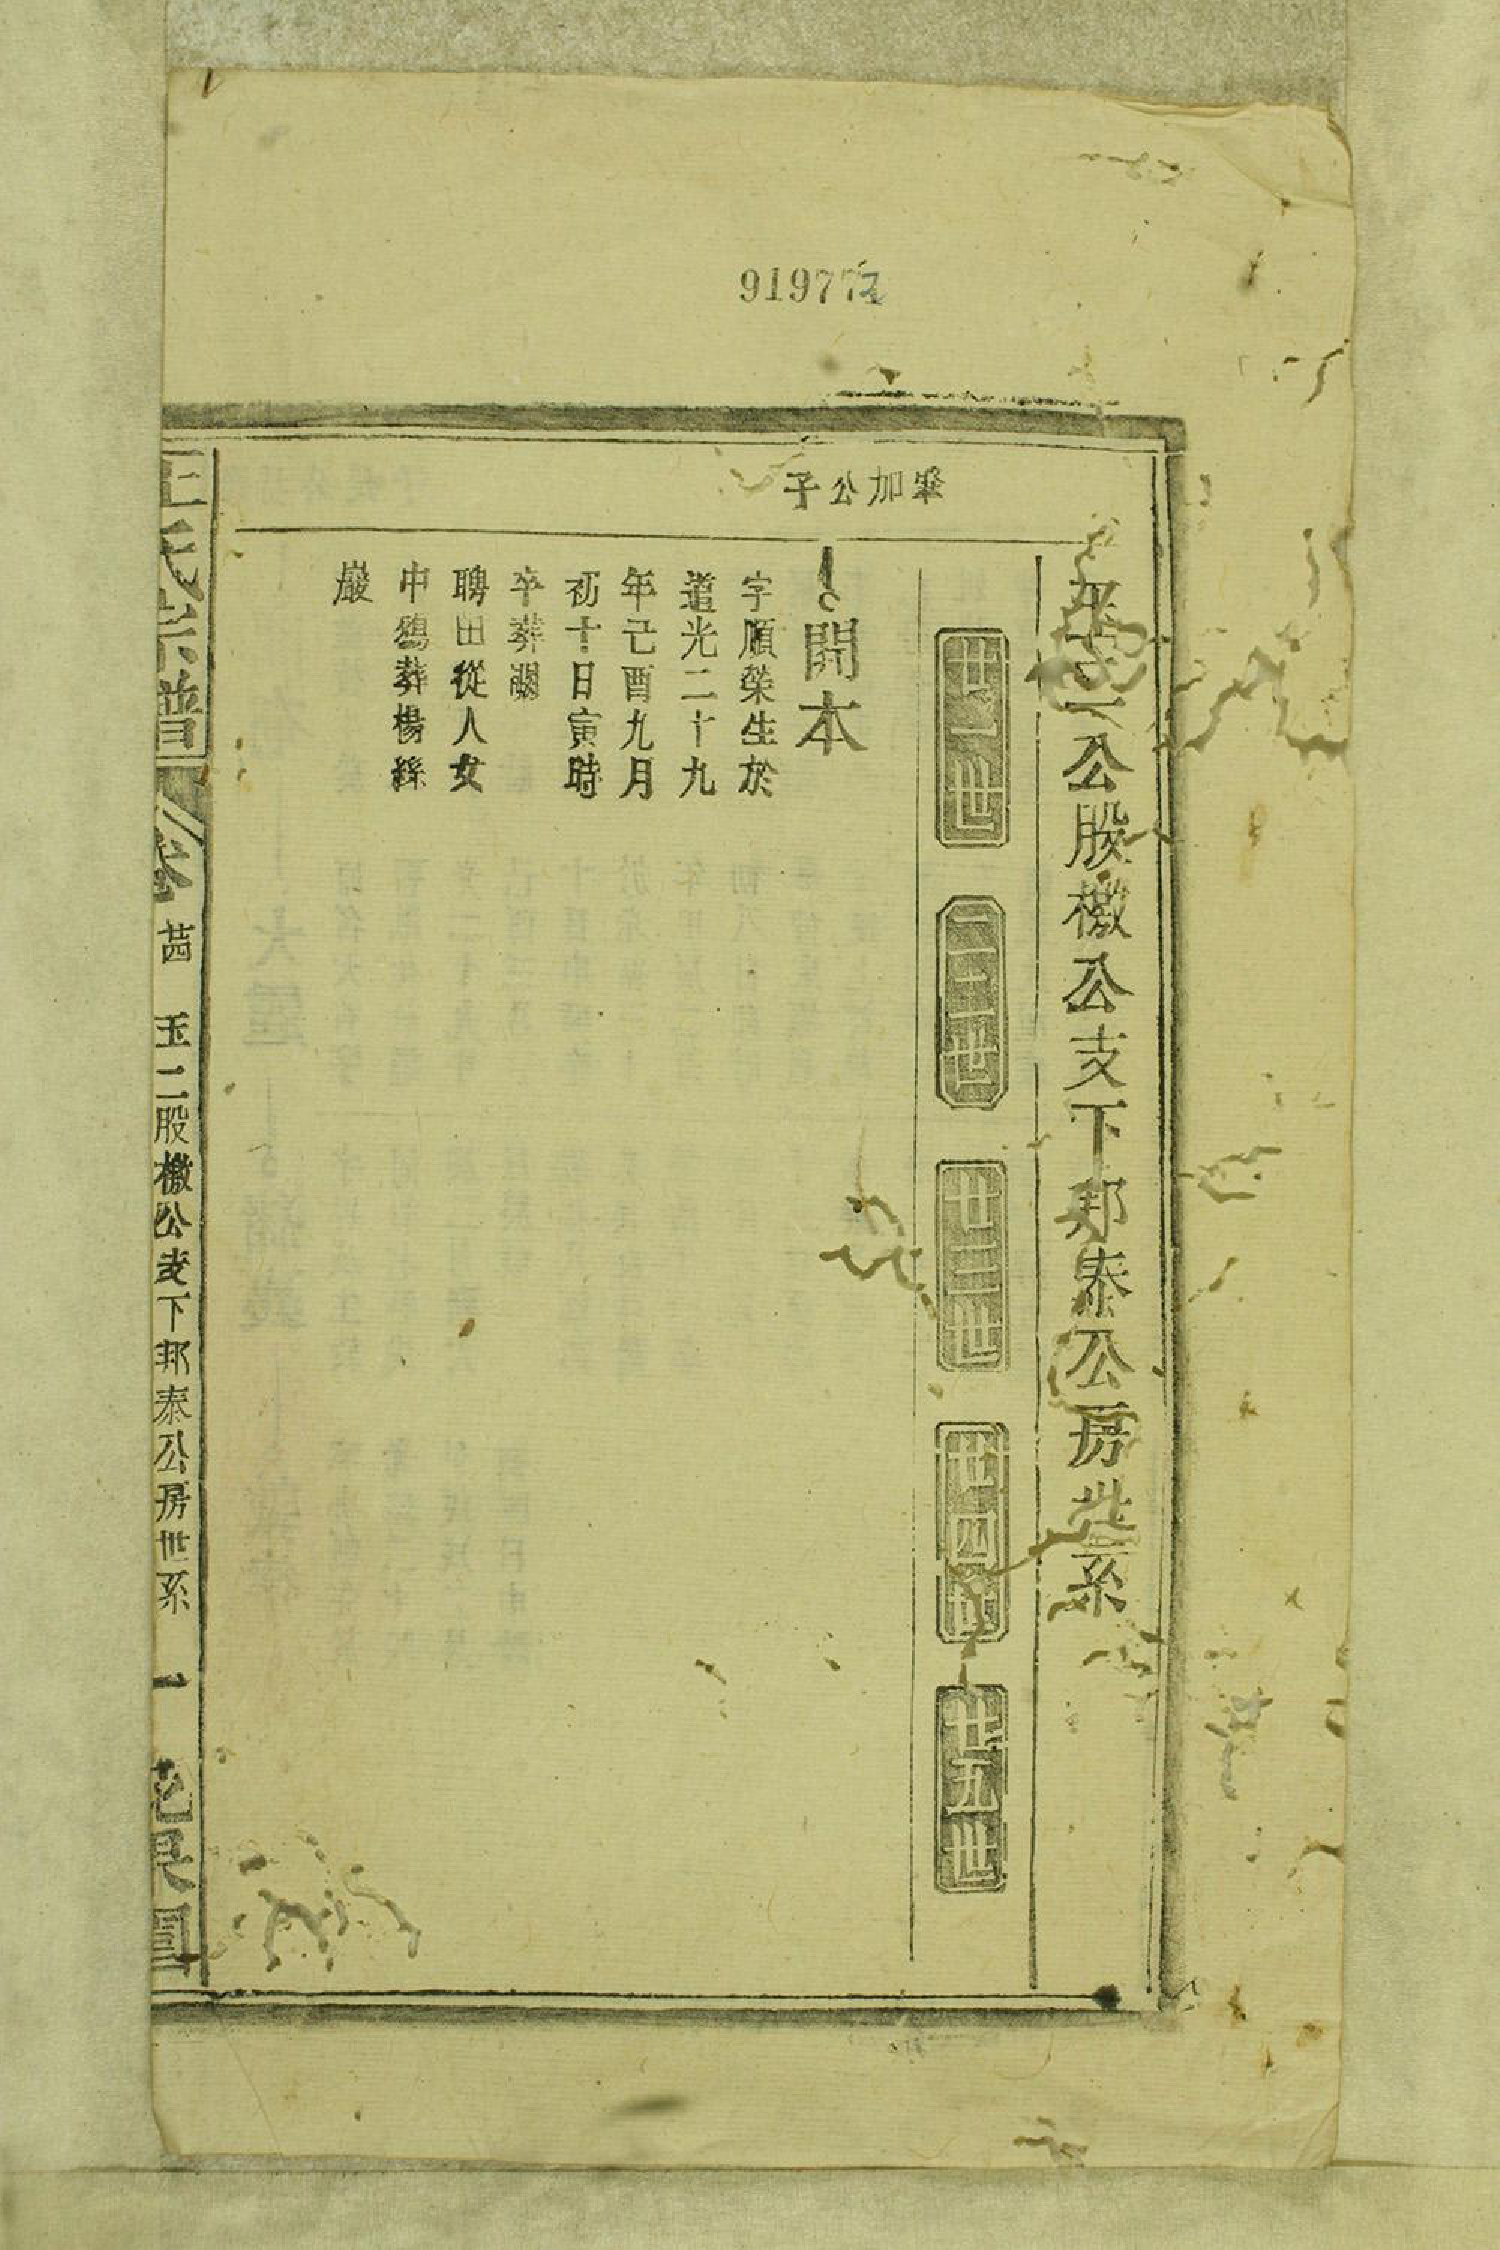 919772
玉二公股檄公支下邦泰公房世系
廿一世
二二世
廿三世
廿四世
廿五世
加公子
開本
字順榮生於
道光二十九
年己酉九月
初十日寅時
卒葬
聘田從人女
中鴉葬楊絲
巖
王氏宗譜
卷
玉二股檄公支下邦泰公房世系
一